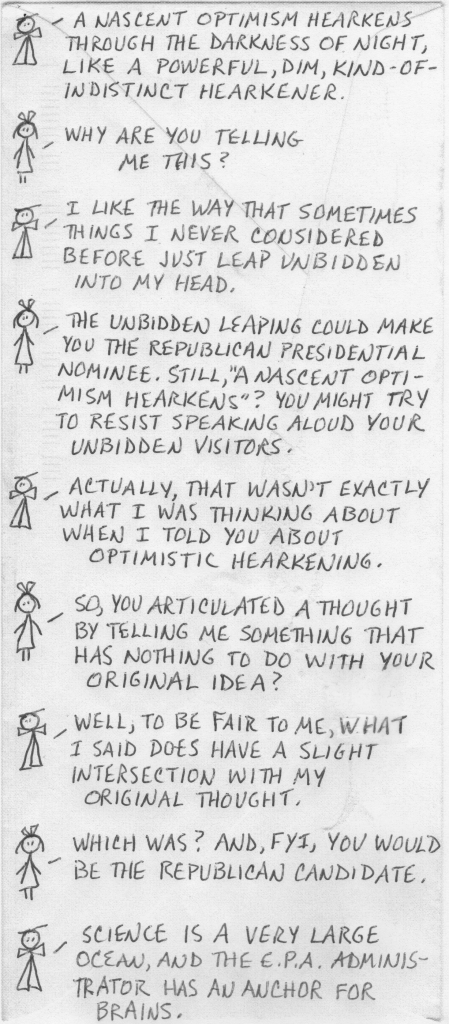 A NASCENT OPTIMISM HEARKENS
THROUGH THE DARKNESS OF NIGHT,
LIKE A POWERFUL, DIM, KIND-OF-
INDISTINCT HEARKENER.
WHY ARE YOU TELLING
ME THIS?
I LIKE THE WAY THAT SOMETIMES
THINGS I NEVER CONSIDERED
BEFORE JUST LEAP UNBIDDEN
INTO MY HEAD.
THE UNBIDDEN LEAPING COULD MAKE
YOU THE REPUBLICAN PRESIDENTIAL
NOMINEE. STILL, "A NASCENT OPTI-
MISM HEARKENS"? YOU MIGHT TRY
TO RESIST SPEAKING ALOUD YOUR
UNBIDDEN VISITORS.
ACTUALLY, THAT WASN'T EXACTLY
WHAT I WAS THINKING ABOUT
WHEN I TOLD YOU ABOUT
OPTIMISTIC HEARKENING.
SO, YOU ARTICULATED A THOUGHT
BY TELLING ME SOMETHING THAT
HAS NOTHING TO DO WITH YOUR
ORIGINAL IDEA?
WELL, TO BE FAIR TO ME, WHAT
I SAID DOES HAVE A SLIGHT
INTERSECTION WITH MY
ORIGINAL THOUGHT.
WHICH WAS? AND, FYI, YOU WOULD
BE THE REPUBLICAN CANDIDATE.
SCIENCE IS A VERY LARGE
OCEAN, AND THE E.P.A. ADMINIS-
TRATOR HAS AN ANCHOR FOR
BRAINS.